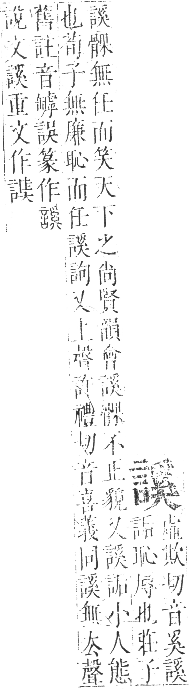 謑虛欺切音奚謑
詬恥辱也莊子
謑髁無任而笑天下之尚賢韻會謑髁不正貌又謑詬小人態
也荀子無廉恥而任謑詢又上聲許禮切音喜義同謑無厺聲
舊註音罅誤篆作謑
說文謑重文作䜁